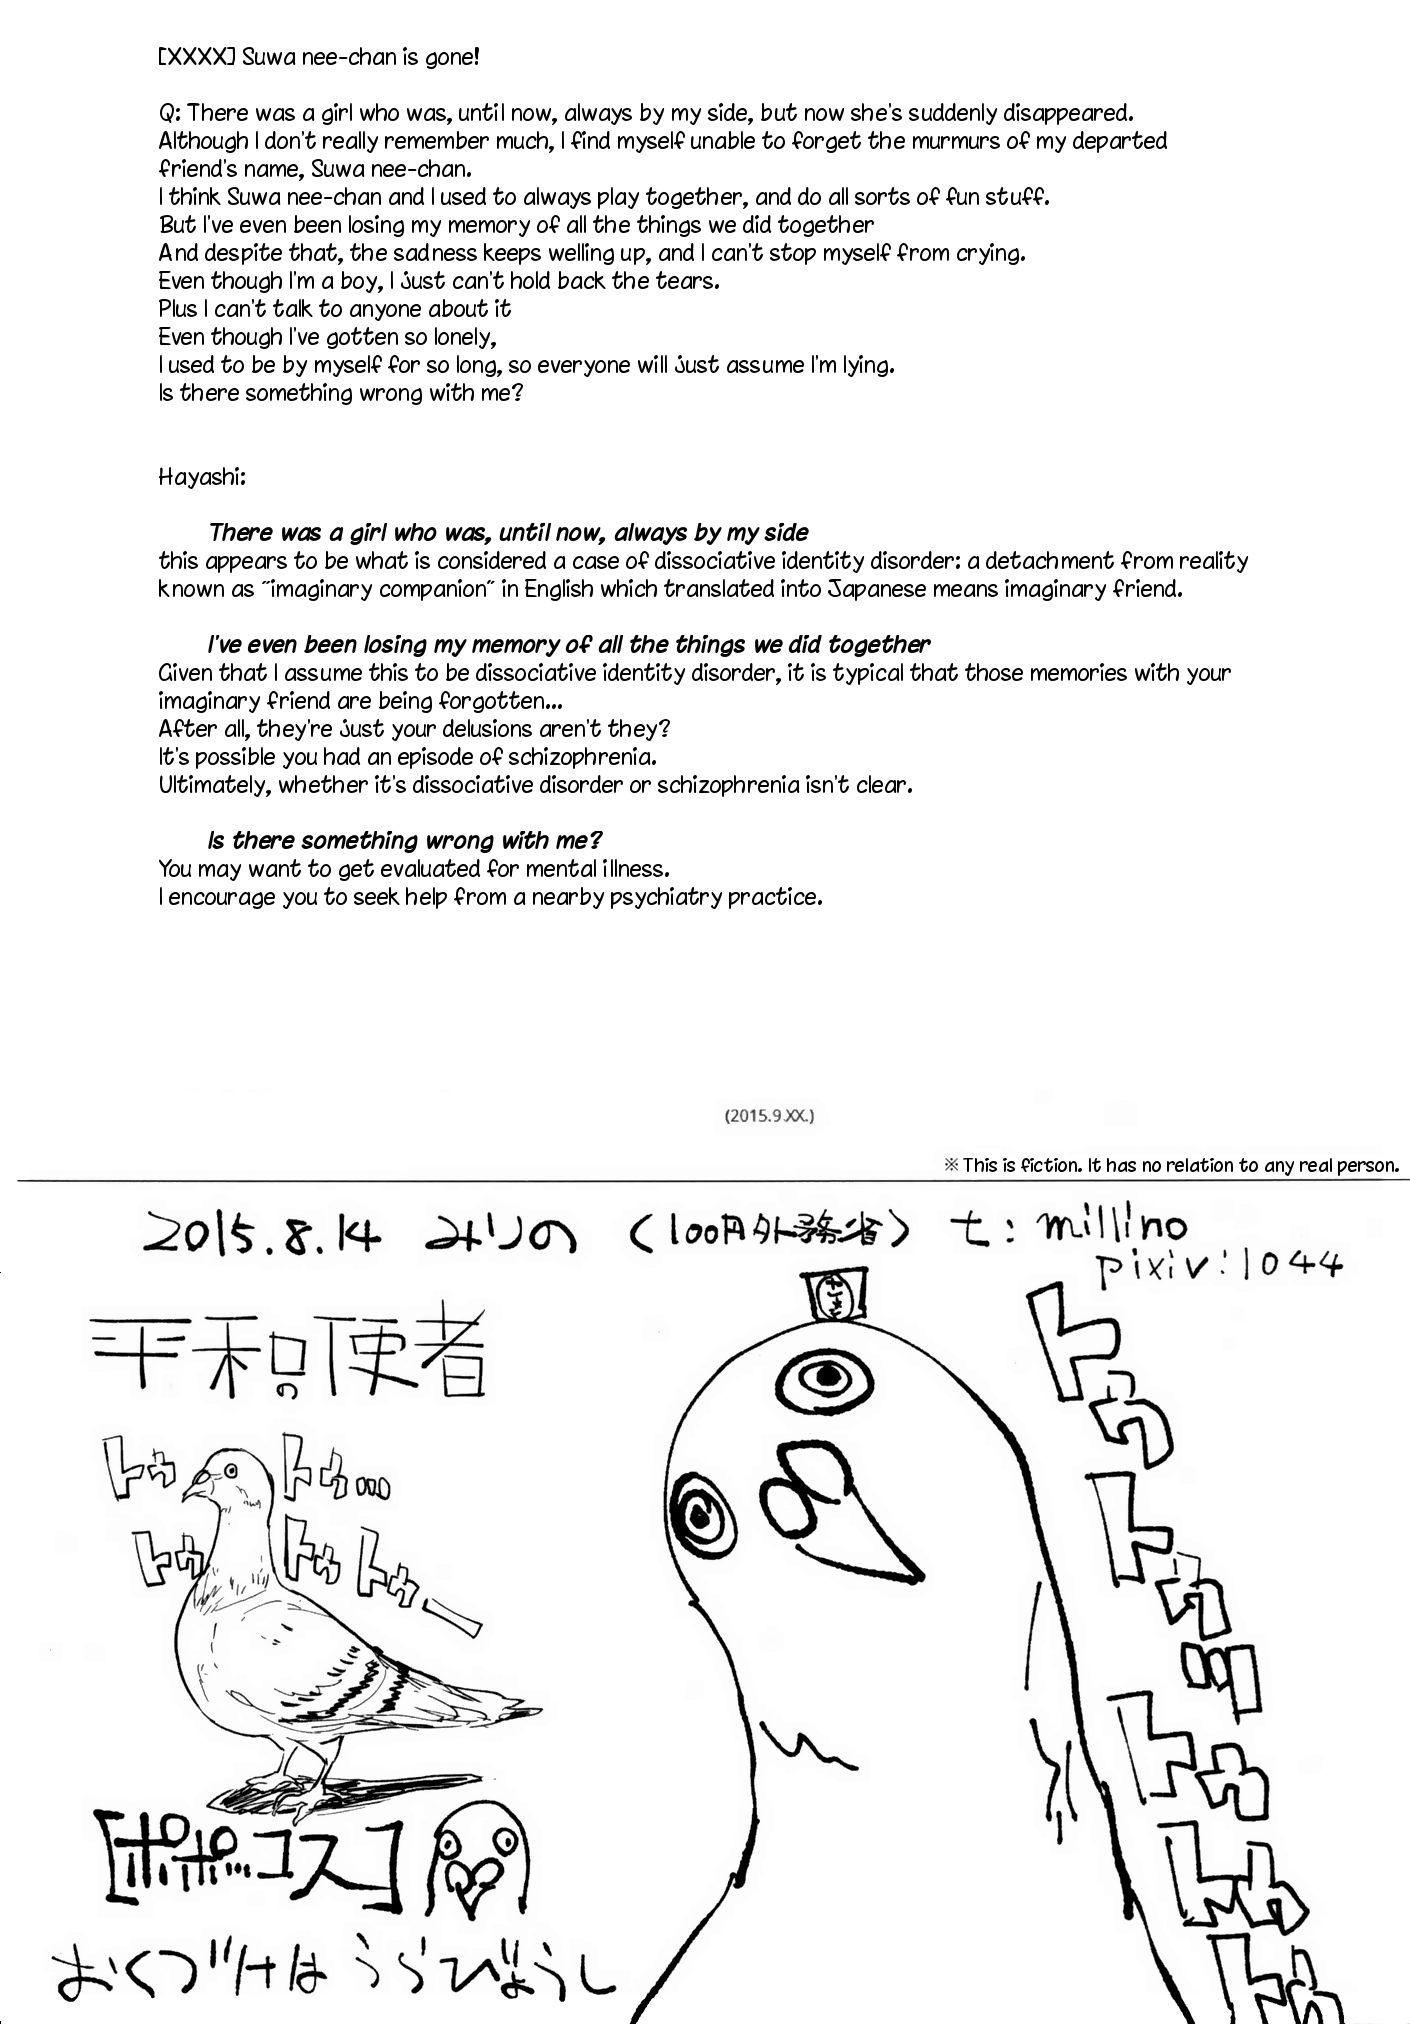 [XXXX] Suwa nee-chan is gone!
Q: There was a girl who was, until now, always by my side, but now she's suddenly disappeared.
Although I don't really remember much, I find myself unable to forget the murmurs of my departed
friend's name, Suwa nee-chan.
I think Suwa nee-chan and I used to always play together, and do all sorts of fun stuff.
But I've even been losing my memory of all the things we did together
And despite that, the sadness keeps welling up, and I can't stop myself from crying.
Even though I'm a boy, I just can't hold back the tears.
Plus I can't talk to anyone about it
Even though I've gotten so lonely,
I used to be by myself for so long, so everyone will just assume I'm lying.
Is there something wrong with me?
Hayashi:
There was a girl who was, until now, always by my side
this appears to be what is considered a case of dissociative identity disorder: a detachment from reality
known as ˝imaginary companion˝ in English which translated into Japanese means imaginary friend.
I've even been losing my memory of all the things we did together
Given that I assume this to be dissociative identity disorder, it is typical that those memories with your
imaginary friend are being forgotten...
After all, they're just your delusions aren't they?
It's possible you had an episode of schizophrenia.
Ultimately, whether it's dissociative disorder or schizophrenia isn't clear.
Is there something wrong with me?
You may want to get evaluated for mental illness.
I encourage you to seek help from a nearby psychiatry practice.
(2015.9.XX.)
※ This is fiction. It has no relation to any real person.
2015.8.14 みりの (100円外務省) t: millino
pixiv: 1044
平和の使者
トゥ トゥ…
トゥ トゥ トゥー
[ポポッコス]
おくづけは うらびょうし
トゥ
トゥ
ツー
トゥ
トゥ
トゥ